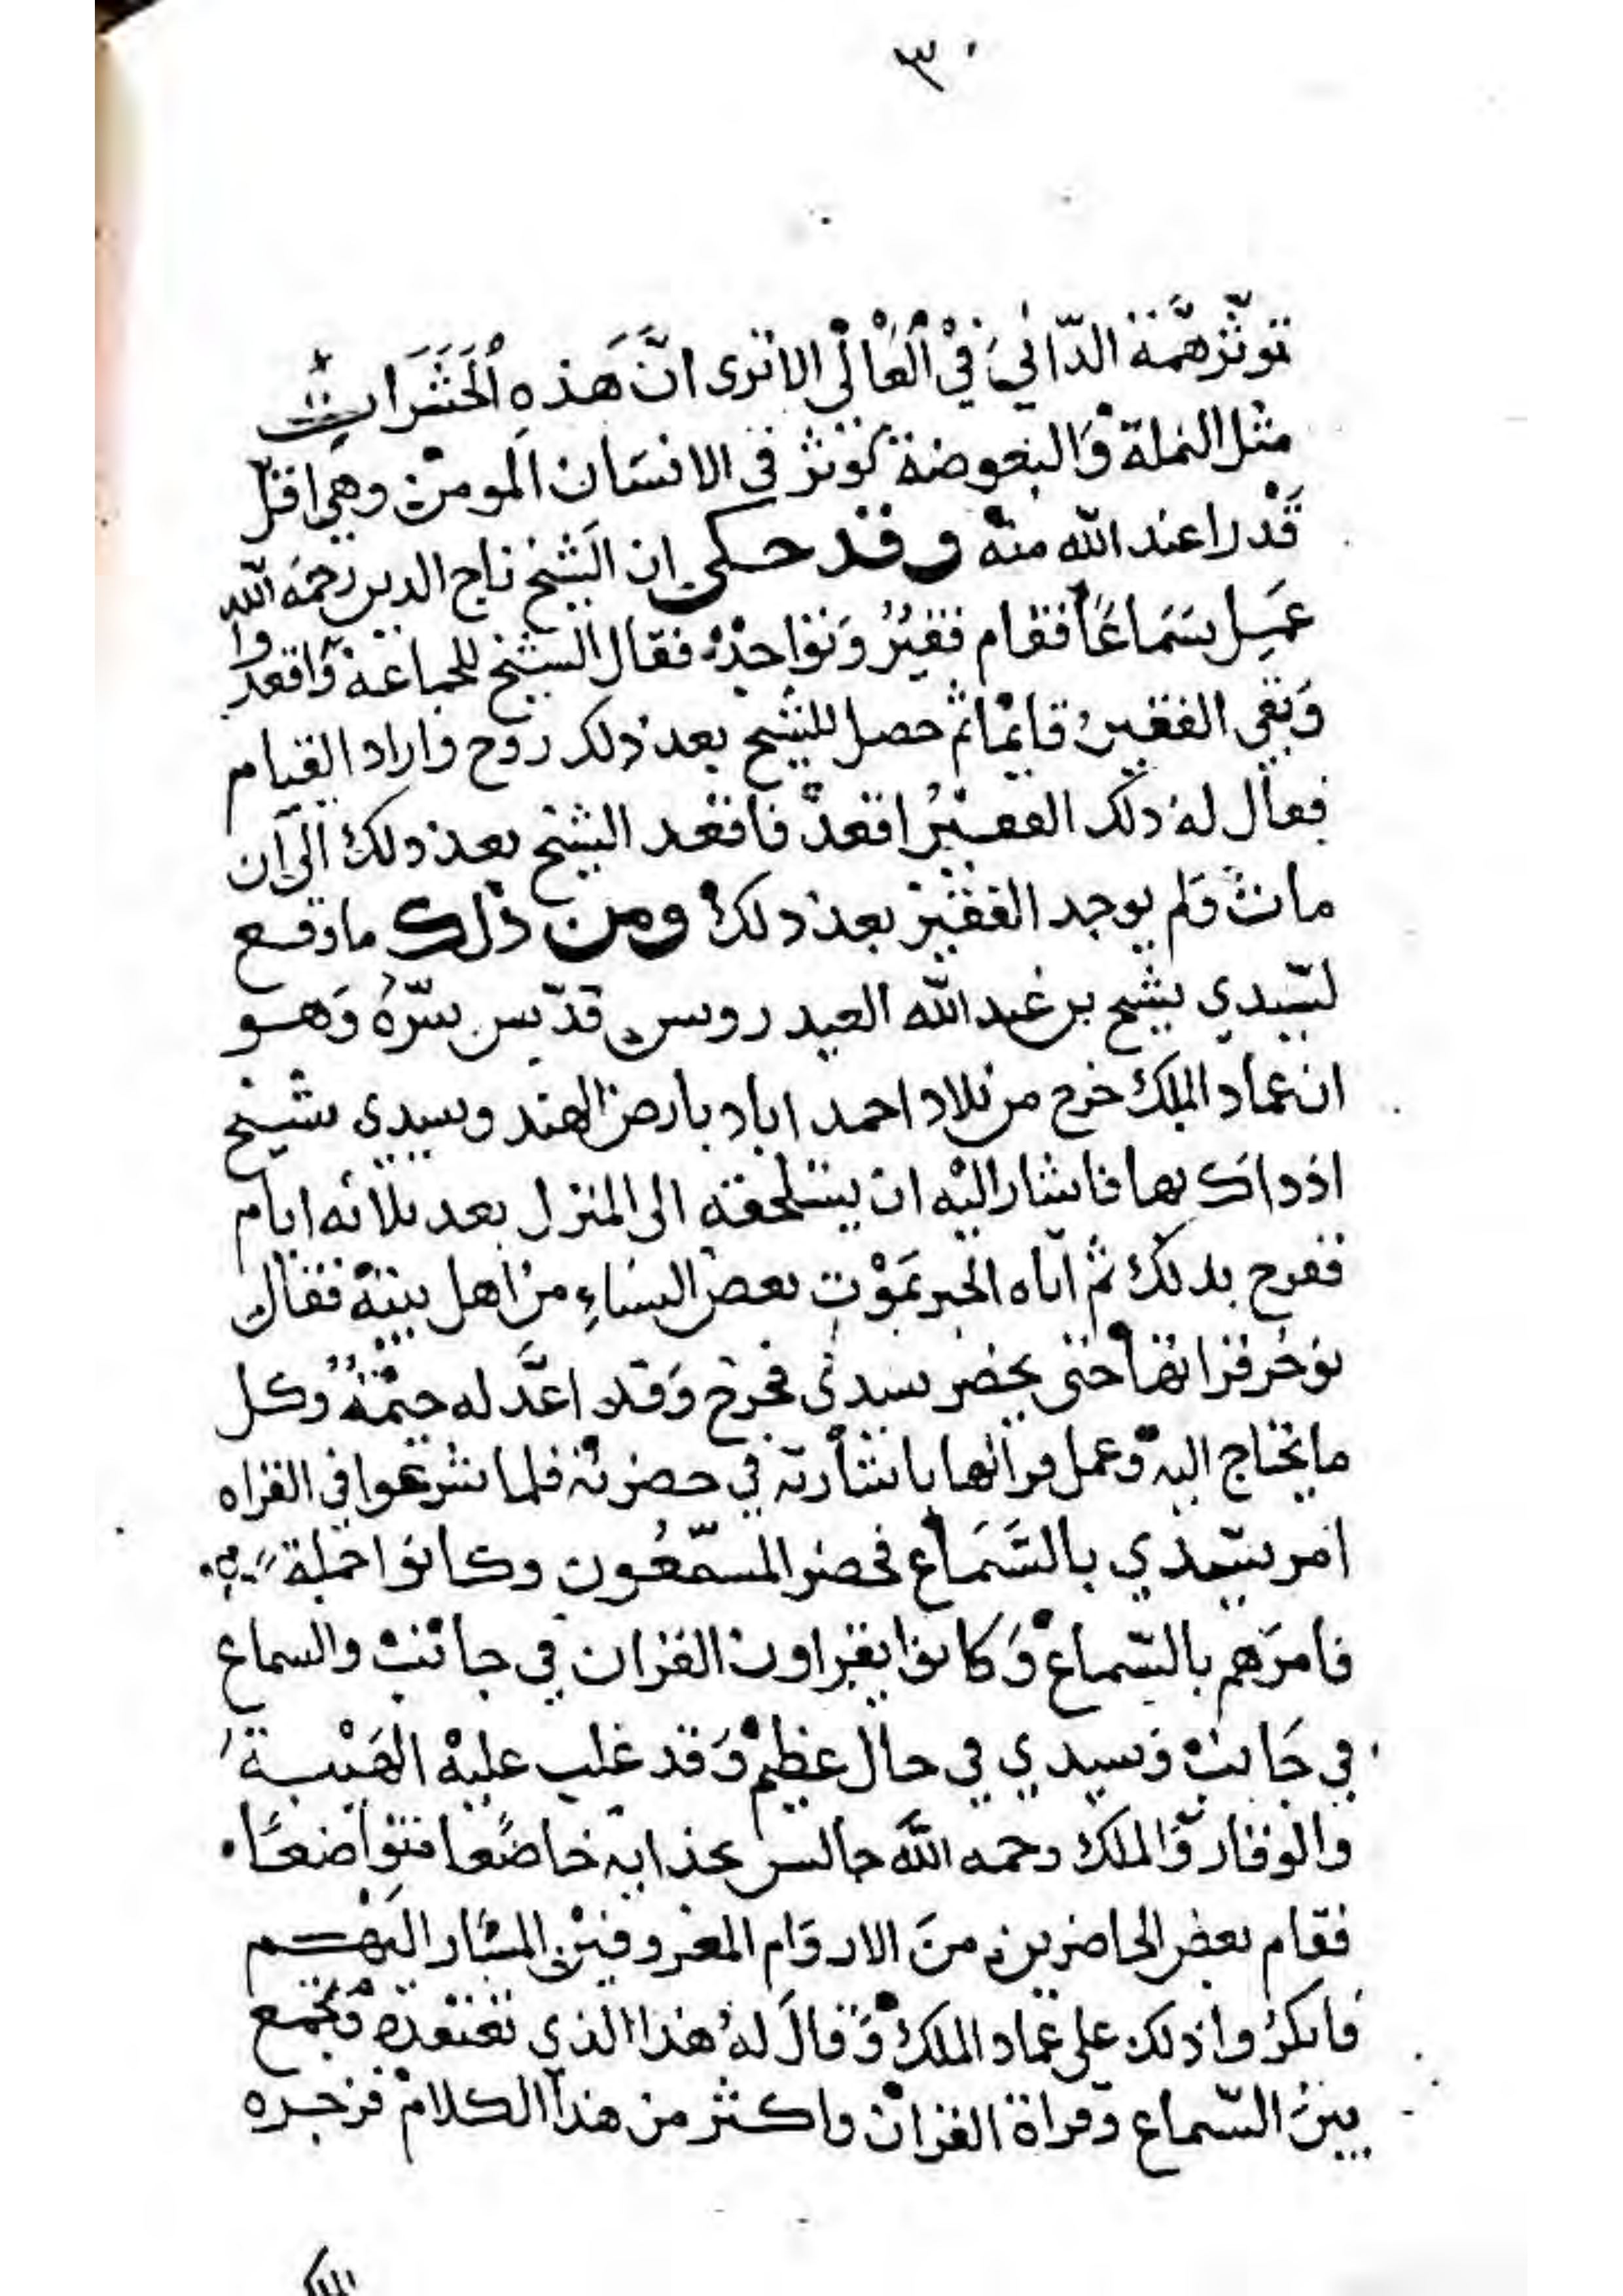 ٣٠
تؤثر همّة الدّاني في العالي الا ترى انّ هذه الحشرات
مثل النملة والبعوضة تؤثر في الانسان المومن وهي اقل
قدرا عند الله منه وقد حكي ان الشيخ تاج الدين رحمه الله
عمل سماعًا فقام فقير وتواجد فقال الشيخ للجماعة اقعدوا
وبقي الفقير قايمًا ثم حصل للشيخ بعد ذلك روح واراد القيام
فقال له ذلك الفقير اقعد فاقعد الشيخ بعد ذلك الى ان
مات ولم يوجد الفقير بعد ذلك ومن ذلك ما وقع
لسيدي شيخ بن عبد الله العيدروس قدّس سرّه وهو
ان عماد الملك خرج من بلاد احمد اباد بارض الهند وسيدي شيخ
اذ ذاك بها فاشار اليه ان يستلحقه الى المنزل بعد ثلاثه ايام
ففرح بذلك ثم اتاه الخبر بموت بعض النساء من اهل بيته فقال
نؤخر قراتها حتى يحضر سيدي فخرج وقد اعدّ له خيمة وكل
ما يحتاج اليه وعمل قراتها باشارته في حضرته فلما شرعوا في القراه
امر سيدي بالسّماع فحضر المسمّعون وكانوا جملة
فامرهم بالسّماع وكانوا يقراون القران في جانب والسماع
في جانب وسيدي في حال عظيم وقد غلب عليه الهيبة
والوقار والملك رحمه الله جالس بحذايه خاضعًا متواضعًا
فقام بعض الحاضرين من الاروام المعروفين المشار اليهم
فانكروا ذلك على عماد الملك وقال له هذا الذي تعتقده يجمع
بين السّماع وقراة القران واكثر من هذا الكلام فزجره
الملك